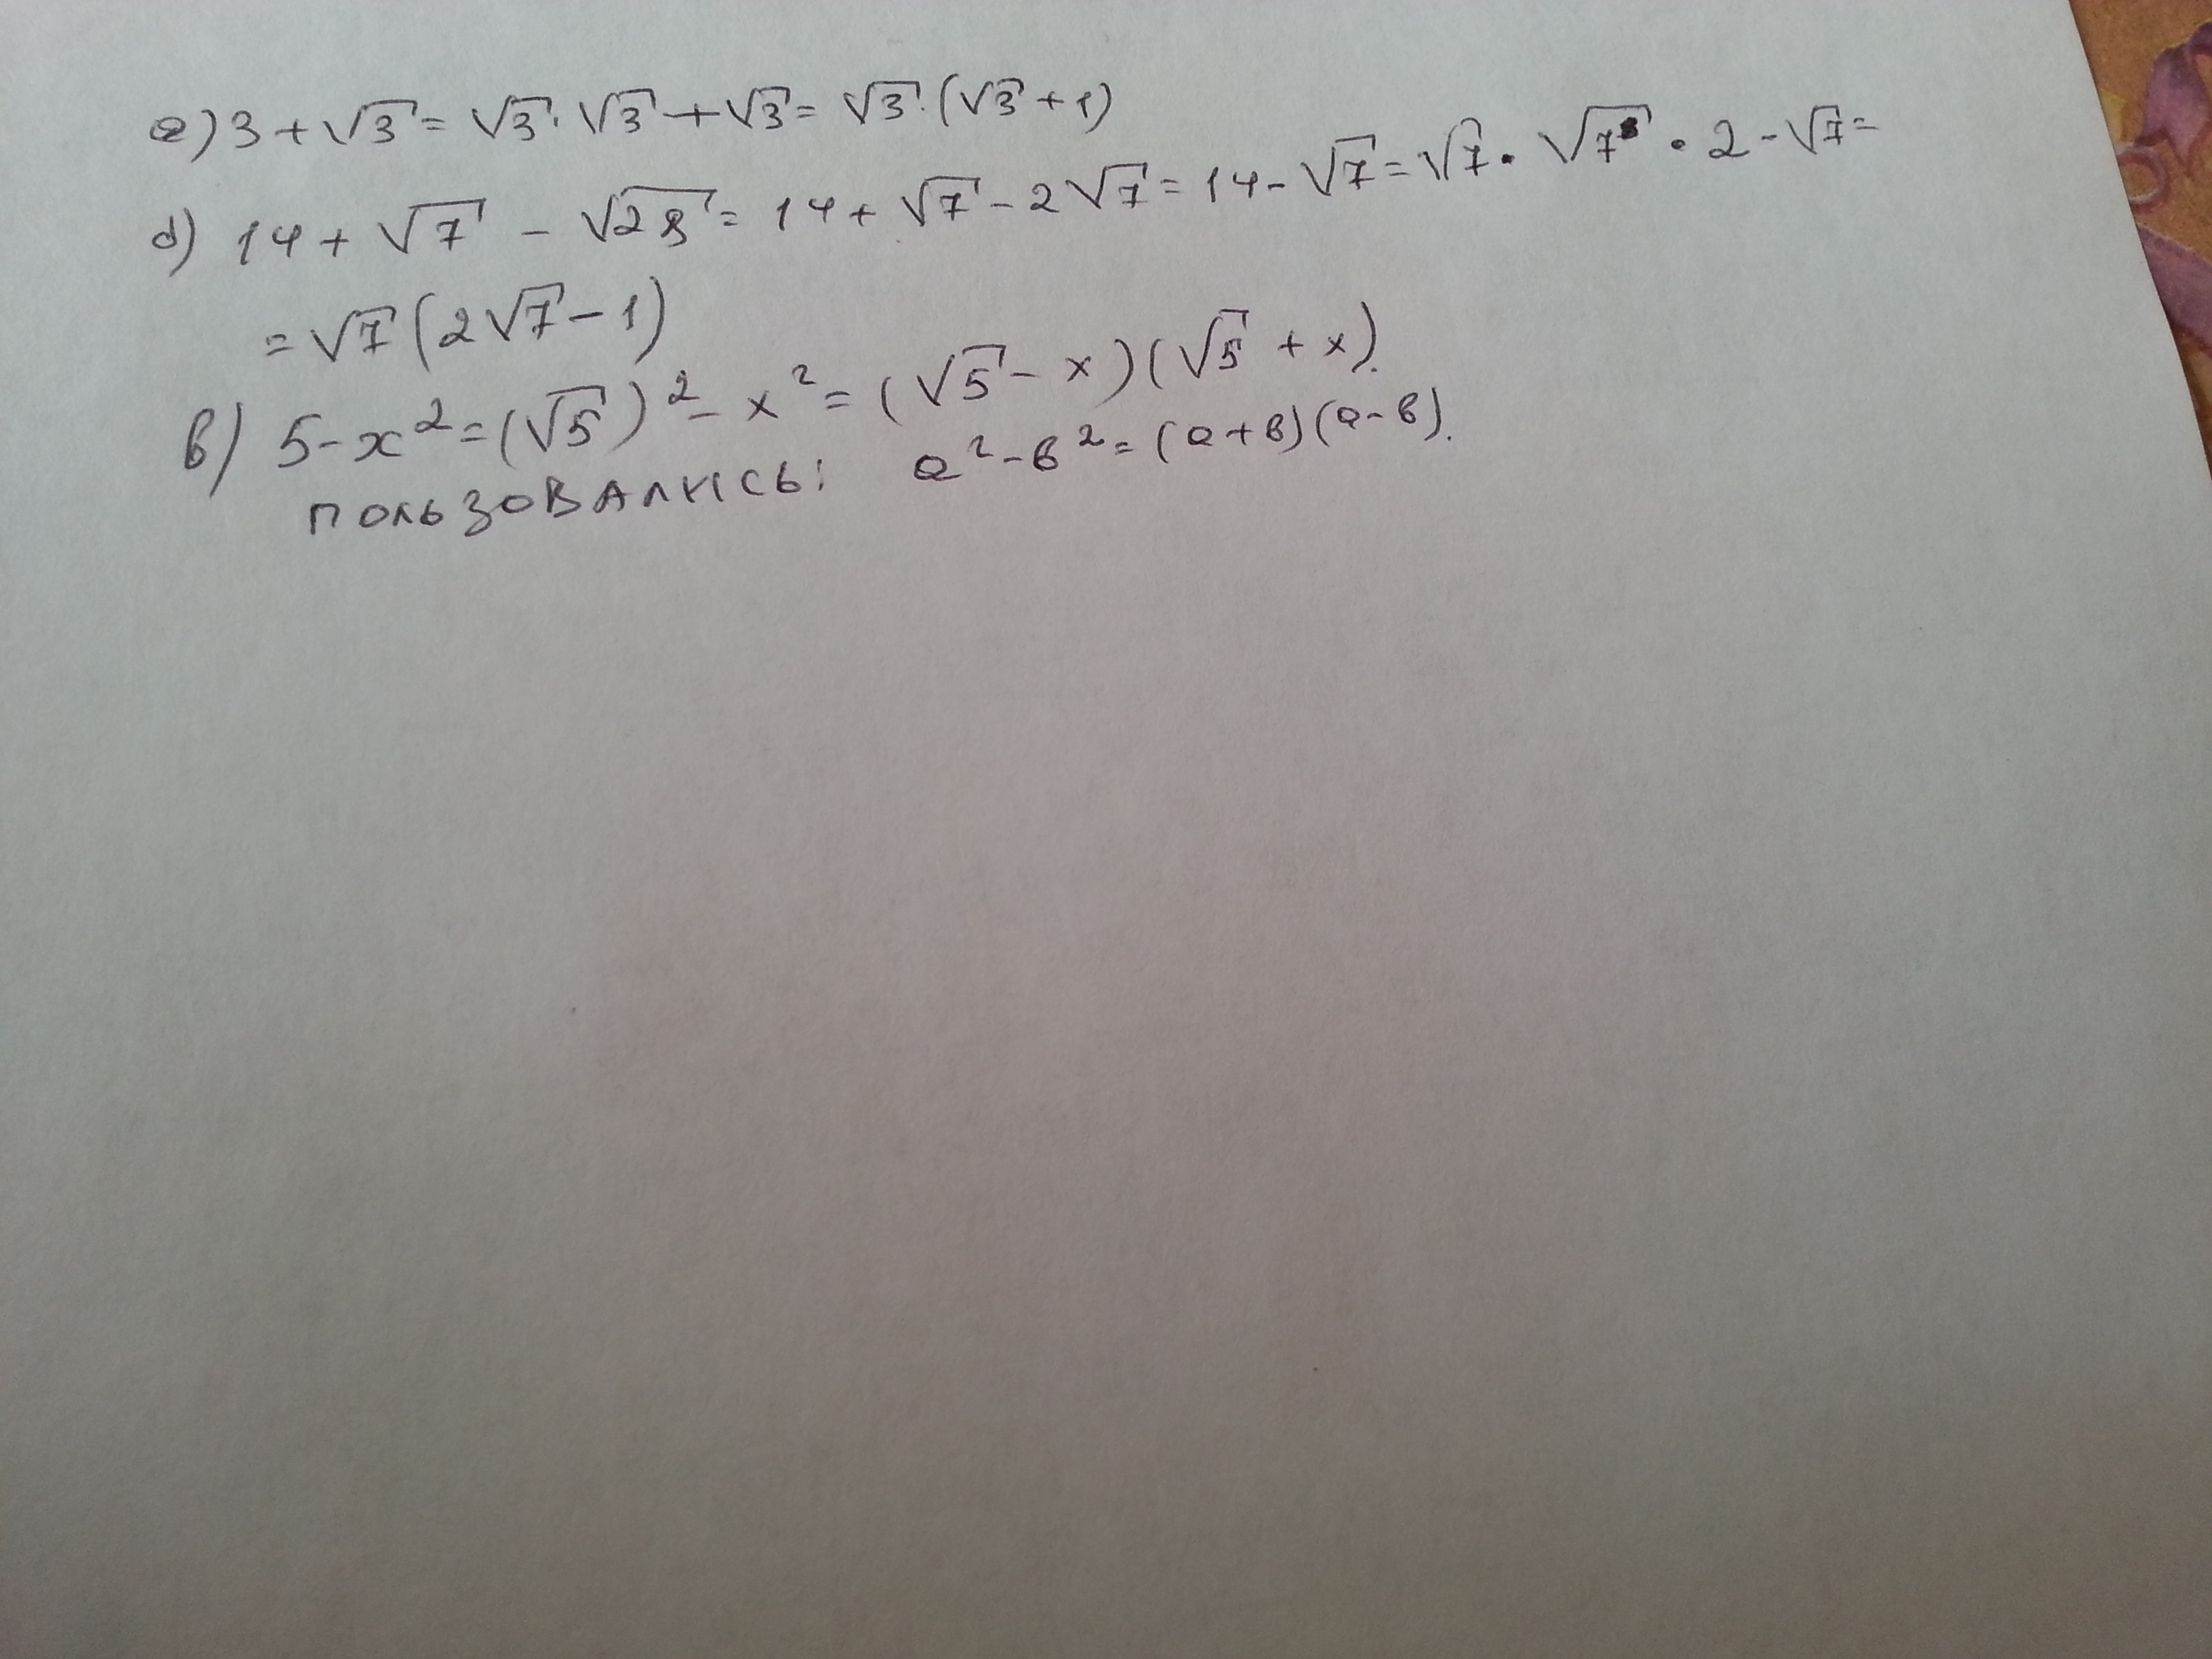 а) 3 + √3 = √3 · √3 + √3 = √3 · (√3 + 1)
б) 14 + √7 - √28 = 14 + √7 - 2√7 = 14 - √7 = √7 · √7 · 2 - √7 =
= √7 (2√7 - 1)
в) 5 - x² = (√5)² - x² = (√5 - x)(√5 + x).
пользовались: а² - в² = (а + в)(а - в).